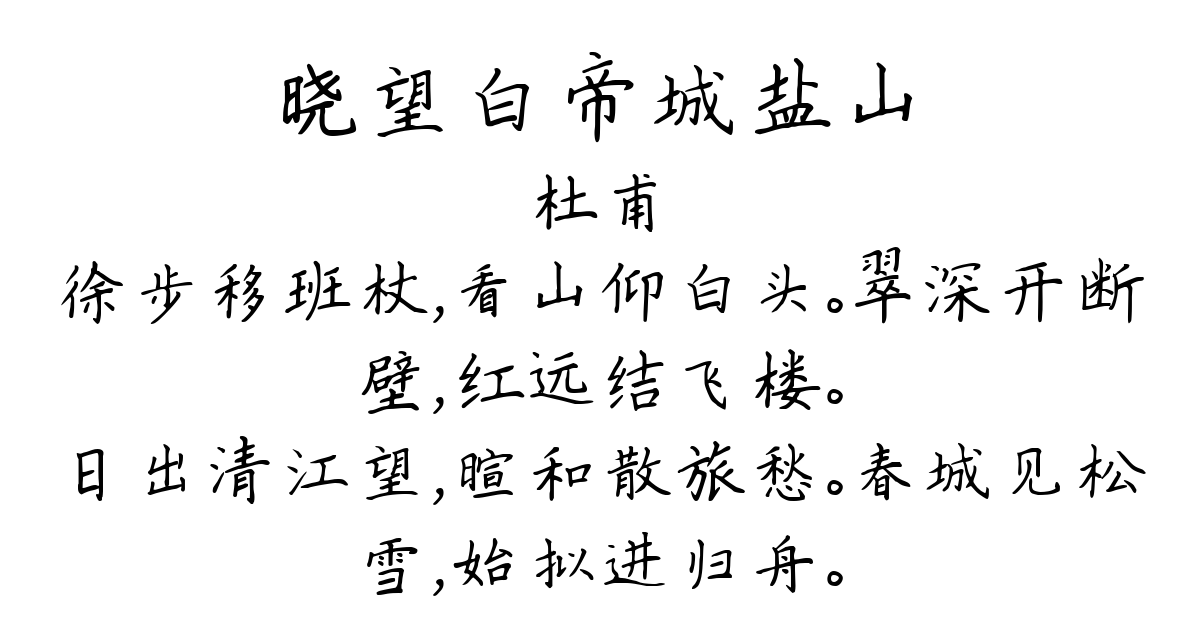 晓望白帝城盐山
杜甫
徐步移班杖,看山仰白头。翠深开断
壁,红远结飞楼。
日出清江望,暄和散旅愁。春城见松
雪,始拟进归舟。